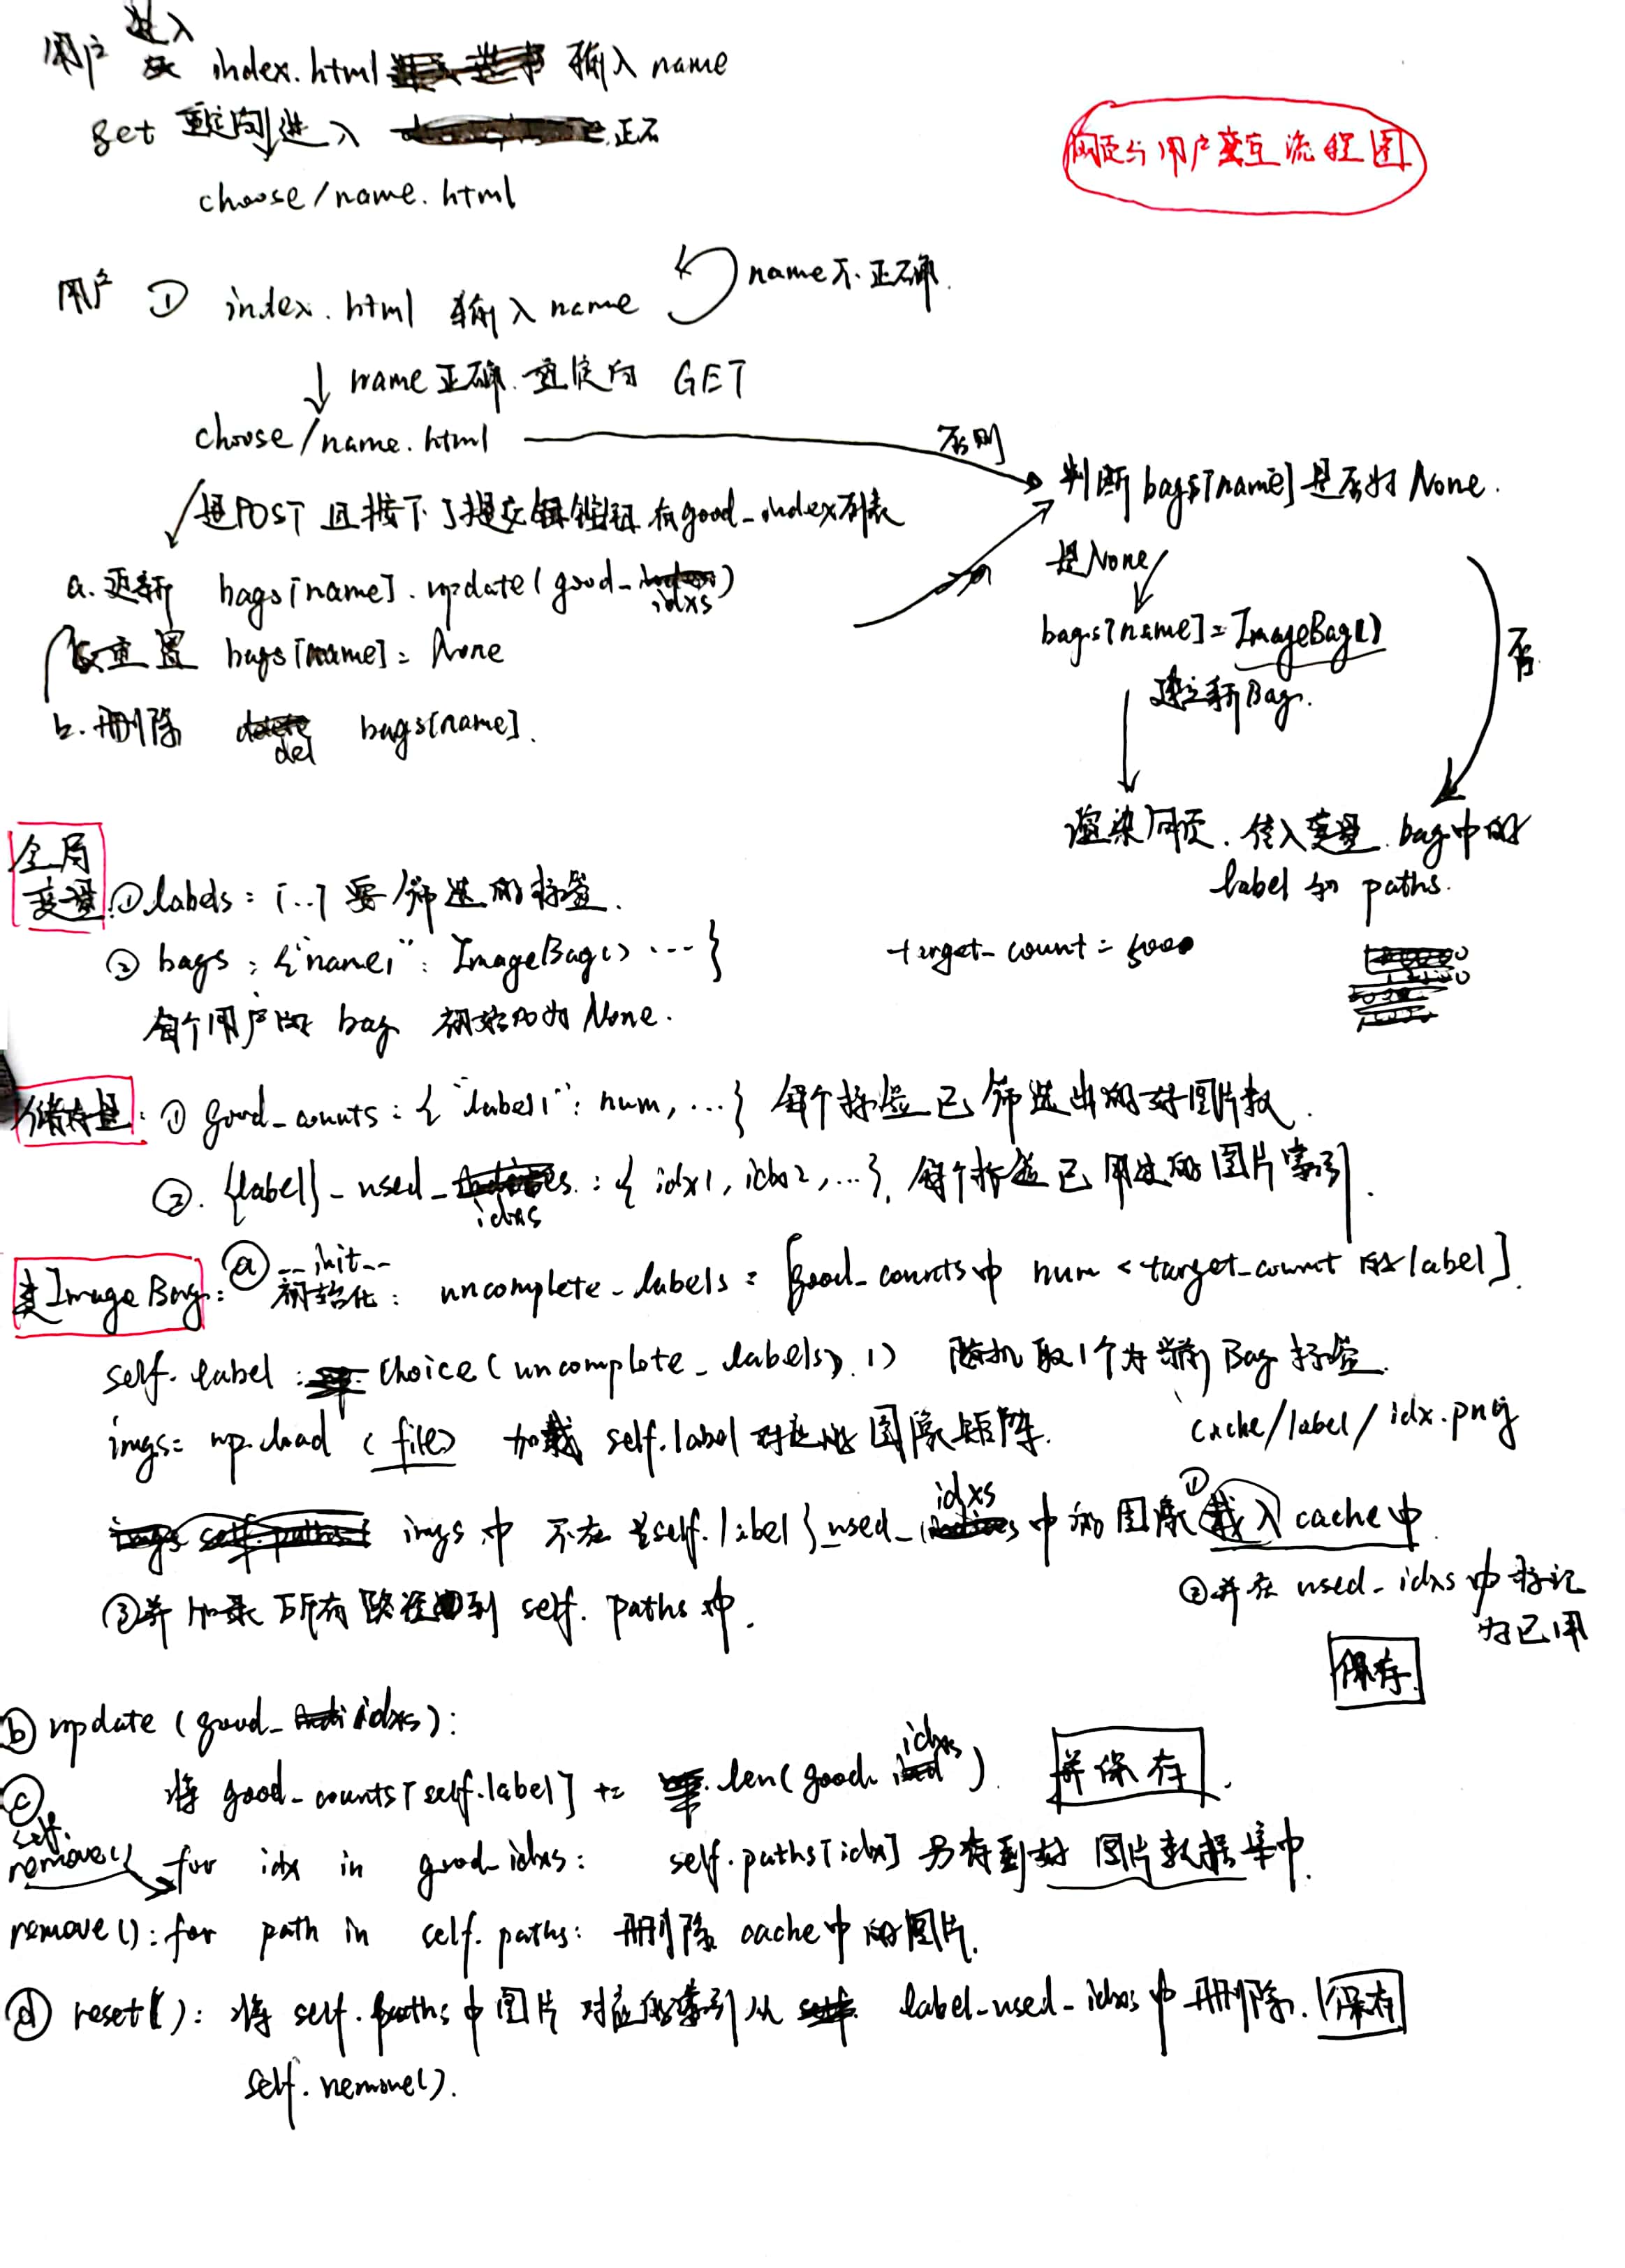 用户 进入 index.html 输入 name
get 重定向进入
choose/name.html
网页与用户交互流程图
用户 ① index.html 输入 name
name 不正确.
name 正确. 重定向 GET
choose/name.html
否则
判断 bags[name] 是否为 None.
是POST 且按下了提交按钮 有good_index列表
是None
a. 更新 bags[name].update(good_idxs)
bags[name] = ImageBag()
否
重置 bags[name] = None
建立新Bag.
b. 删除 del bags[name].
渲染网页. 传入变量. bag中的
label 和 paths.
全局
变量: ① labels: [...] 要筛选的标签.
② bags: {"name1": ImageBag() ... }
target_count = 5000
每个用户的 bag 初始化为 None.
储存量: ① good_counts: {"label1": num, ...} 每个标签已筛选出的好图片数.
②. {label}_used_idxs: {idx1, idx2, ...}, 每个标签已用过的图片索引.
类ImageBag: ⓐ __init__
初始化: uncomplete_labels = [good_counts中 num < target_count 的 label].
self.label: choice(uncomplete_labels, 1) 随机取1个为当前Bag标签.
imgs = np.load (file) 加载 self.label 对应的图像矩阵.
cache/label/idx.png
imgs 中 不在 {self.label}_used_idxs 中的图像 ① 载入 cache中
② 并在 used_idxs 中标记
为已用
③ 并加录所有路径到 self.paths 中.
保存.
ⓑ update (good_idxs):
将 good_counts[self.label] += len(good_idxs). 并保存.
ⓒ self.remove() for idx in good_idxs: self.paths[idx] 另存到好图片数据集中.
remove(): for path in self.paths: 删除 cache中的图片.
ⓓ reset(): 将 self.paths 中图片对应的索引从 label_used_idxs 中删除. 保存
self.remove().